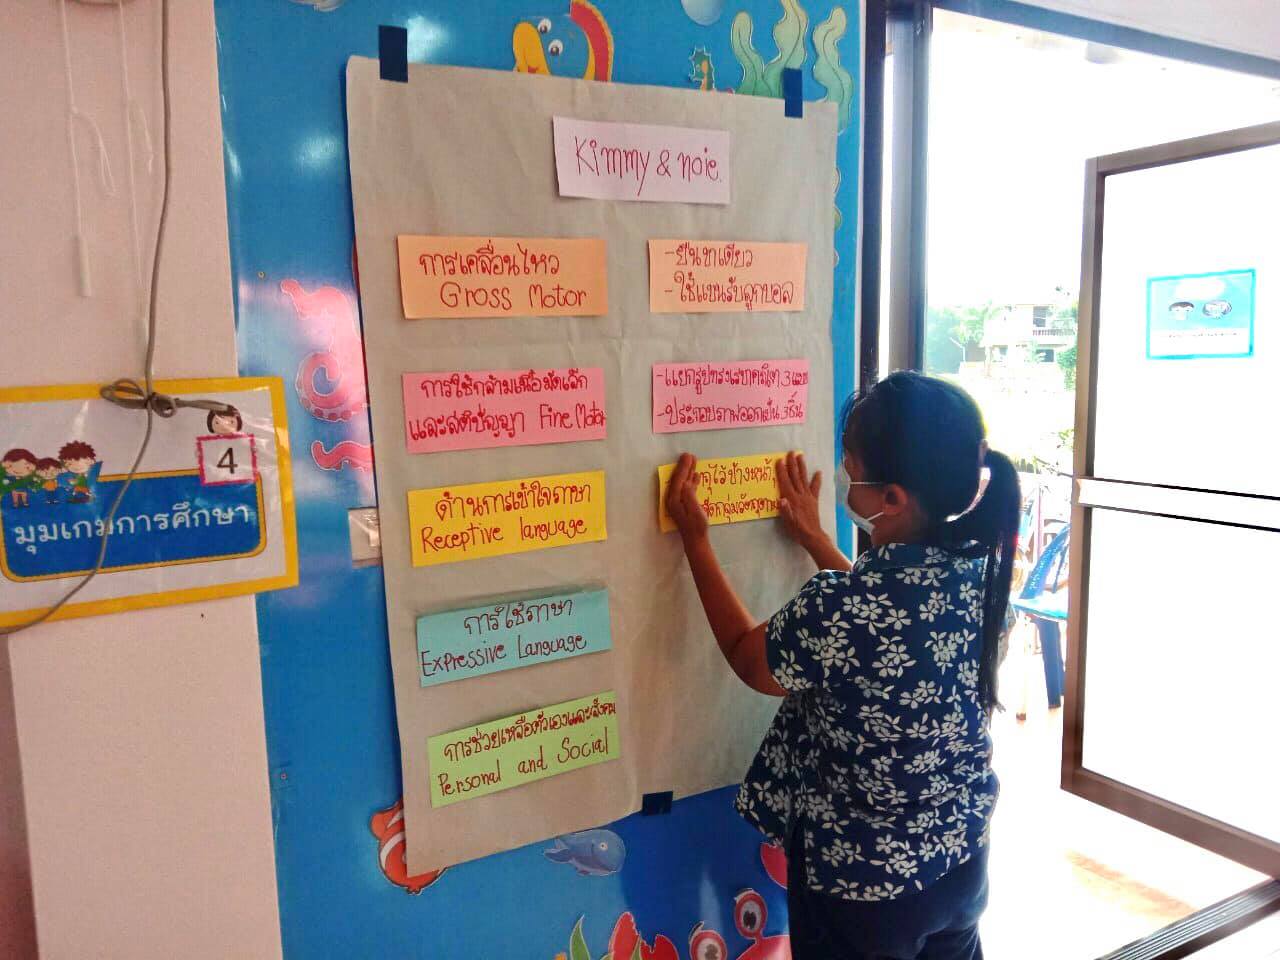 Kimmy & noie.
การเคลื่อนไหว
Gross Motor
-ยืนขาเดียว
-ใช้แขนรับลูกบอล
การใช้กล้ามเนื้อมัดเล็ก
และสติปัญญา Fine Motor
-แยกรูปทรงเรขาคณิต 3 แบบ
-ประกอบภาพออกเป็น 3 ชิ้น
ด้านการเข้าใจภาษา
Receptive language
ไว้ข้างหน้า
การใช้ภาษา
Expressive Language
การช่วยเหลือตัวเองและสังคม
Personal and Social
4
มุมเกมการศึกษา